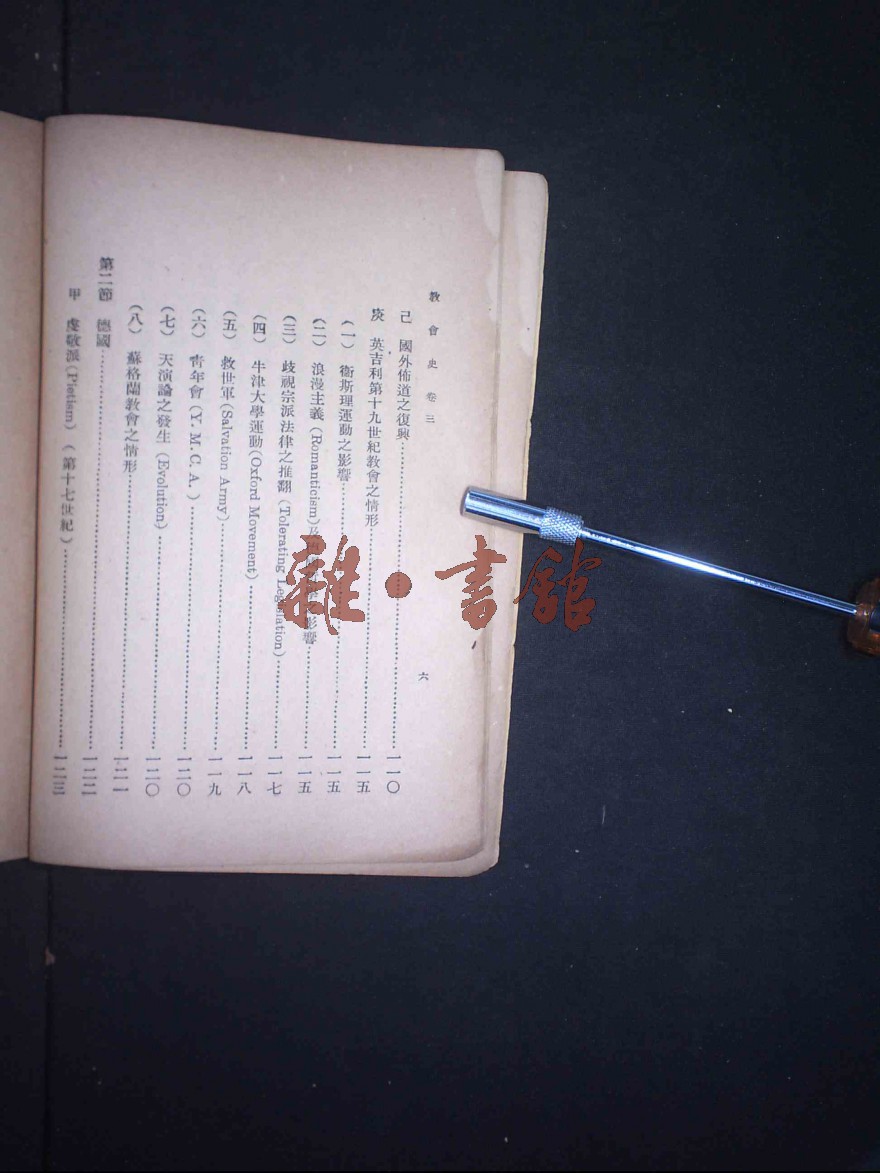 教會史 卷三
六
己 國外佈道之復興 一一〇
庚 英吉利第十九世紀教會之情形 一一五
(一) 衞斯理運動之影響 一一五
(二) 浪漫主義(Romanticism)及 影響 一一五
(三) 歧視宗派法律之推翻(Tolerating Legislation) 一一七
(四) 牛津大學運動(Oxford Movement) 一一八
(五) 救世軍(Salvation Army) 一一九
(六) 青年會(Y. M. C. A.) 一二〇
(七) 天演論之發生(Evolution) 一二〇
(八) 蘇格蘭教會之情形 一二一
第二節 德國 一二二
甲 虔敬派(Pietism)(第十七世紀) 一二三
雜·書館